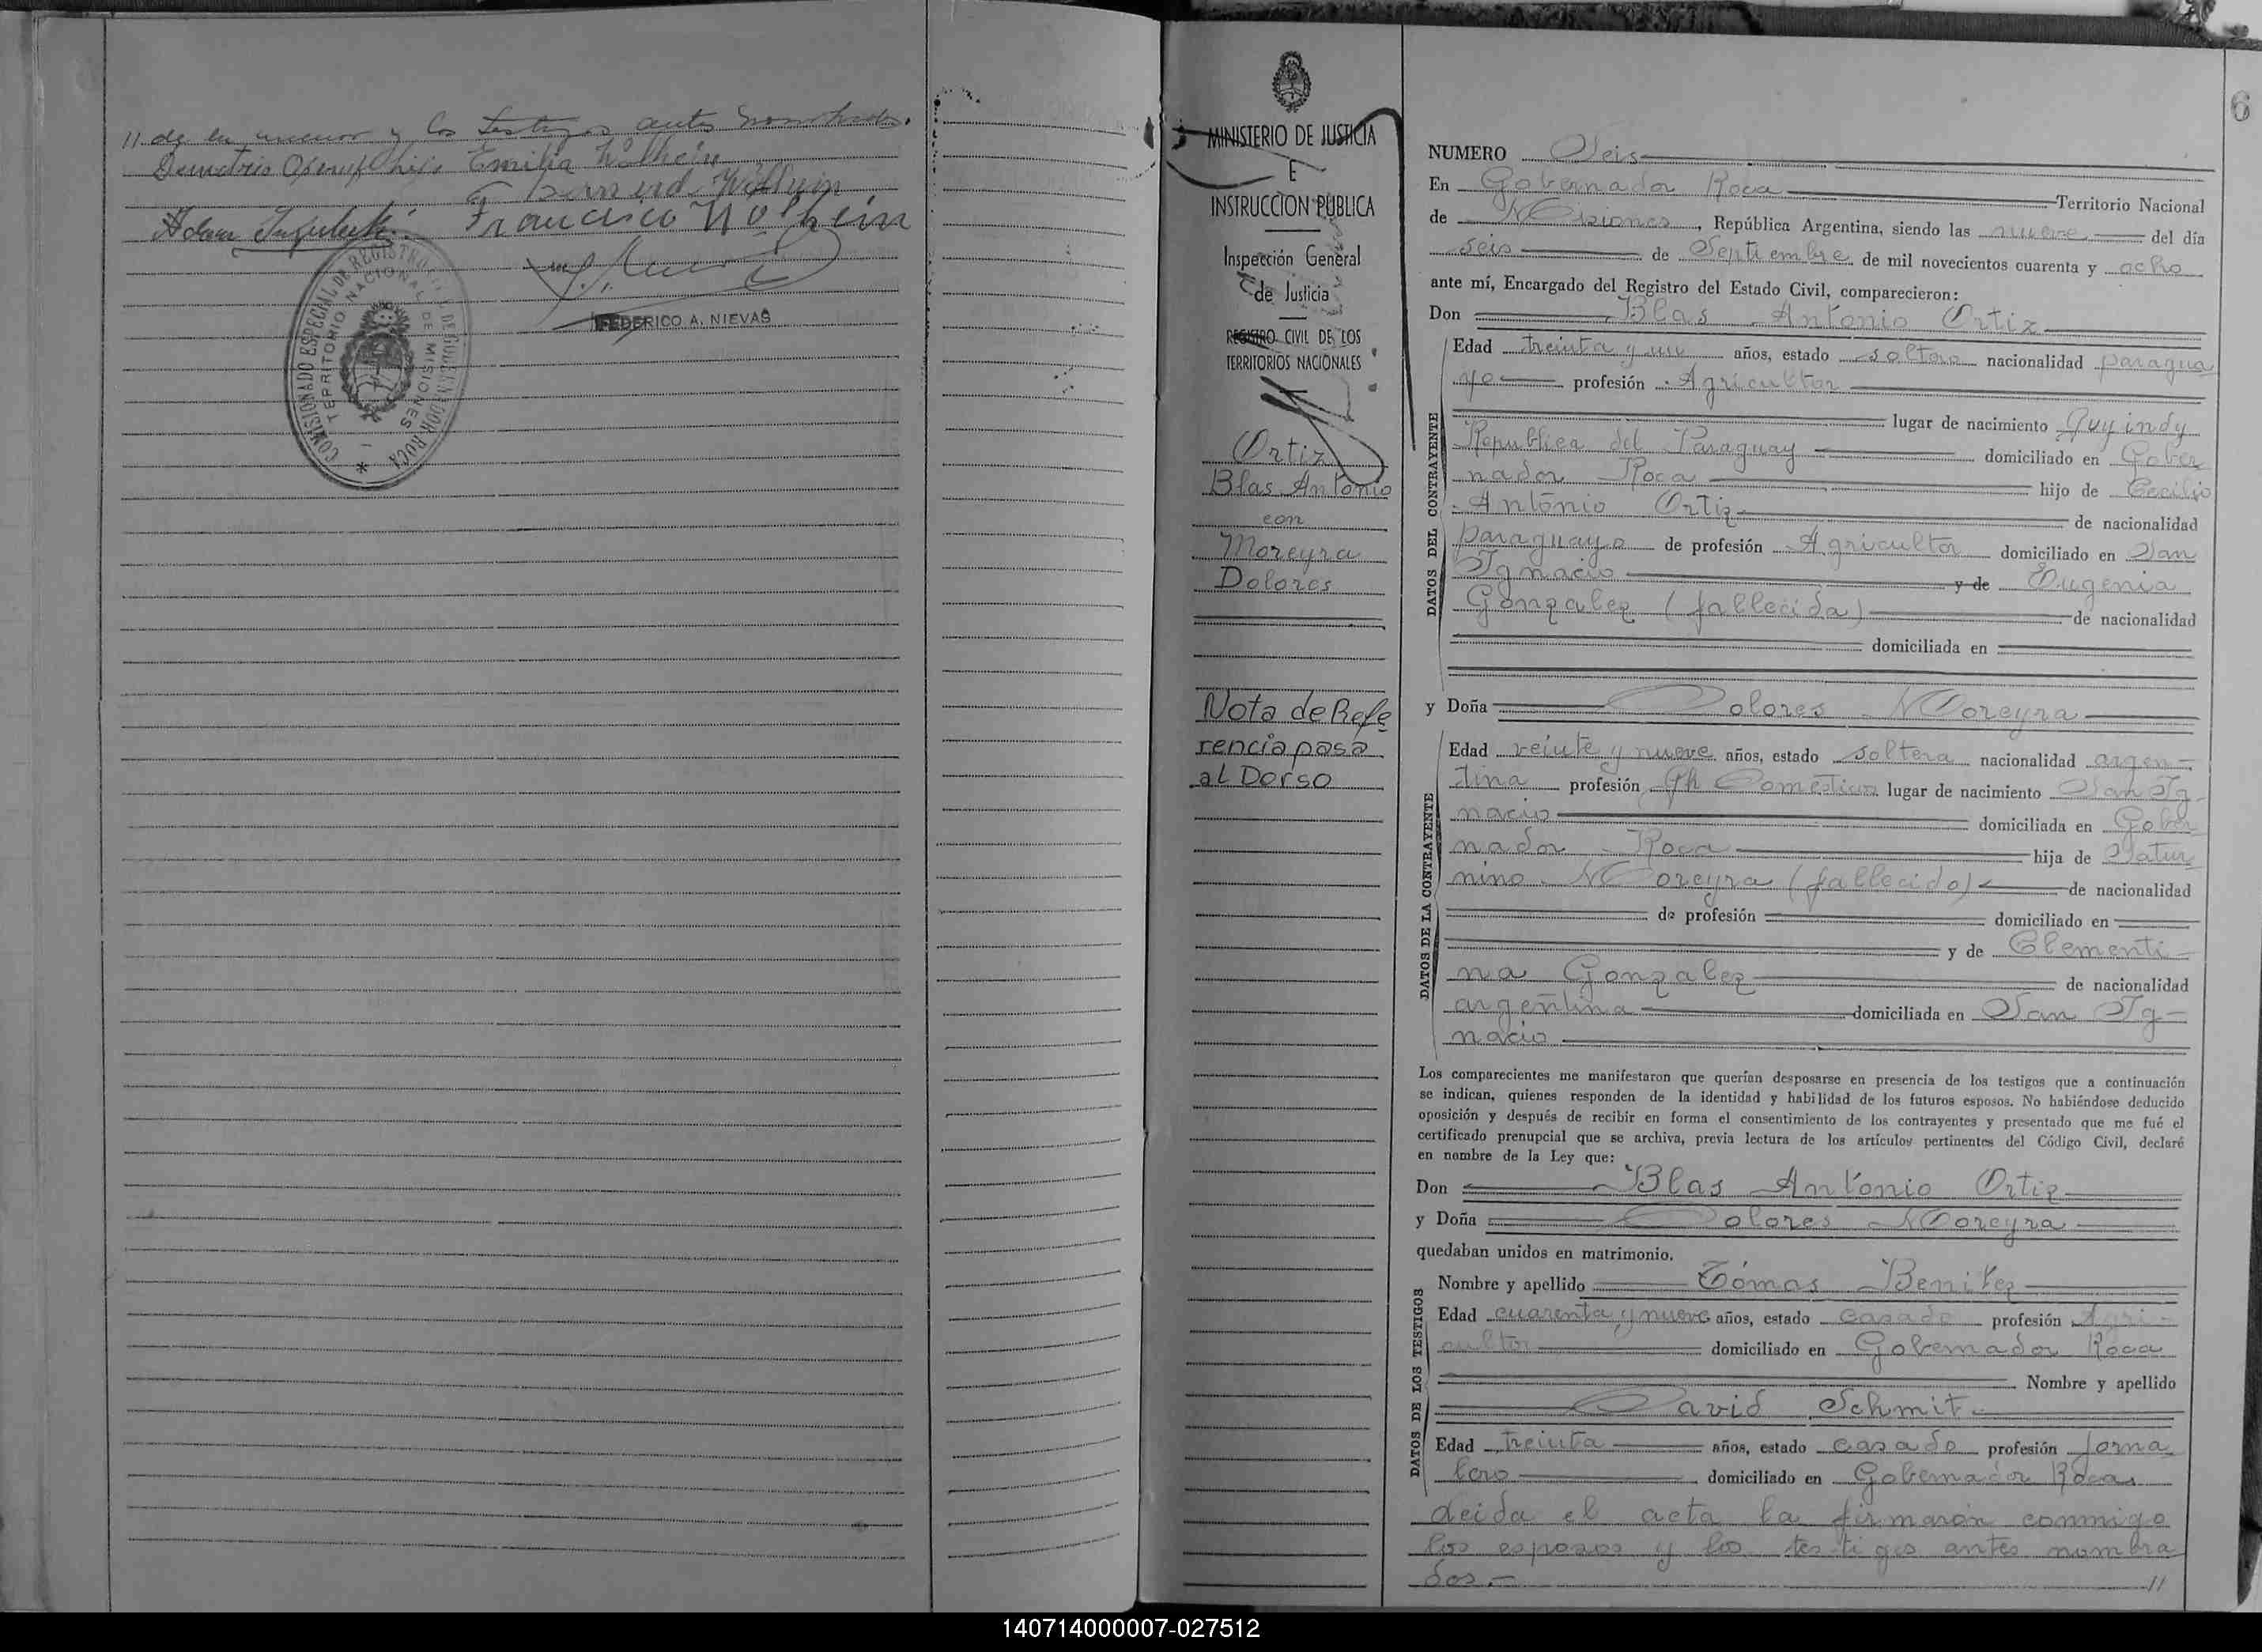 // de la menor y los testigos antes nombrados.
Demetrio hijo Emilia Wolhein
Wolhein
Adam Francisco Wolhein
FEDERICO A. NIEVAS
COMISIONADO ESPECIAL DE REGISTRO CIVIL DE GOBERNADOR ROCA
TERRITORIO NACIONAL DE MISIONES
MINISTERIO DE JUSTICIA
E
INSTRUCCION PUBLICA
Inspección General
de Justicia
REGISTRO CIVIL DE LOS
TERRITORIOS NACIONALES
Ortiz
Blas Antonio
con
Moreyra
Dolores
Nota de Refe
rencia pasa
al Dorso
6
NUMERO Seis
En Gobernador Roca Territorio Nacional
de Misiones, República Argentina, siendo las nueve del día
seis de Septiembre de mil novecientos cuarenta y ocho
ante mí, Encargado del Registro del Estado Civil, comparecieron:
Don Blas Antonio Ortiz
DATOS DEL CONTRAYENTE
Edad treinta y un años, estado soltero nacionalidad paragua
yo profesión Agricultor
lugar de nacimiento Quyindy
Republica del Paraguay domiciliado en Gober
nador Roca hijo de Cecilio
Antonio Ortiz de nacionalidad
paraguayo de profesión Agricultor domiciliado en San
Ignacio y de Eugenia
Gonzalez (fallecida) de nacionalidad
domiciliada en
y Doña Dolores Moreyra
DATOS DE LA CONTRAYENTE
Edad veinte y nueve años, estado soltera nacionalidad argen-
tina profesión Qh Domésticos lugar de nacimiento San Ig-
nacio domiciliada en Gober
nador Roca hija de Satur
nino Moreyra (fallecido) de nacionalidad
de profesión domiciliado en
y de Clementi-
na Gonzalez de nacionalidad
argentina domiciliada en San Ig-
nacio
Los comparecientes me manifestaron que querían desposarse en presencia de los testigos que a continuación
se indican, quienes responden de la identidad y habilidad de los futuros esposos. No habiéndose deducido
oposición y después de recibir en forma el consentimiento de los contrayentes y presentado que me fué el
certificado prenupcial que se archiva, previa lectura de los artículos pertinentes del Código Civil, declaré
en nombre de la Ley que:
Don Blas Antonio Ortiz
y Doña Dolores Moreyra
quedaban unidos en matrimonio.
DATOS DE LOS TESTIGOS
Nombre y apellido Tómas Benitez
Edad cuarenta y nueve años, estado casado profesión Agri-
cultor domiciliado en Gobernador Roca
Nombre y apellido
David Schmit
Edad treinta años, estado casado profesión Jorna
lero domiciliado en Gobernador Roca
Leida el acta la firmaron conmigo
los esposos y los testigos antes nombra
dos.- //
140714000007-027512